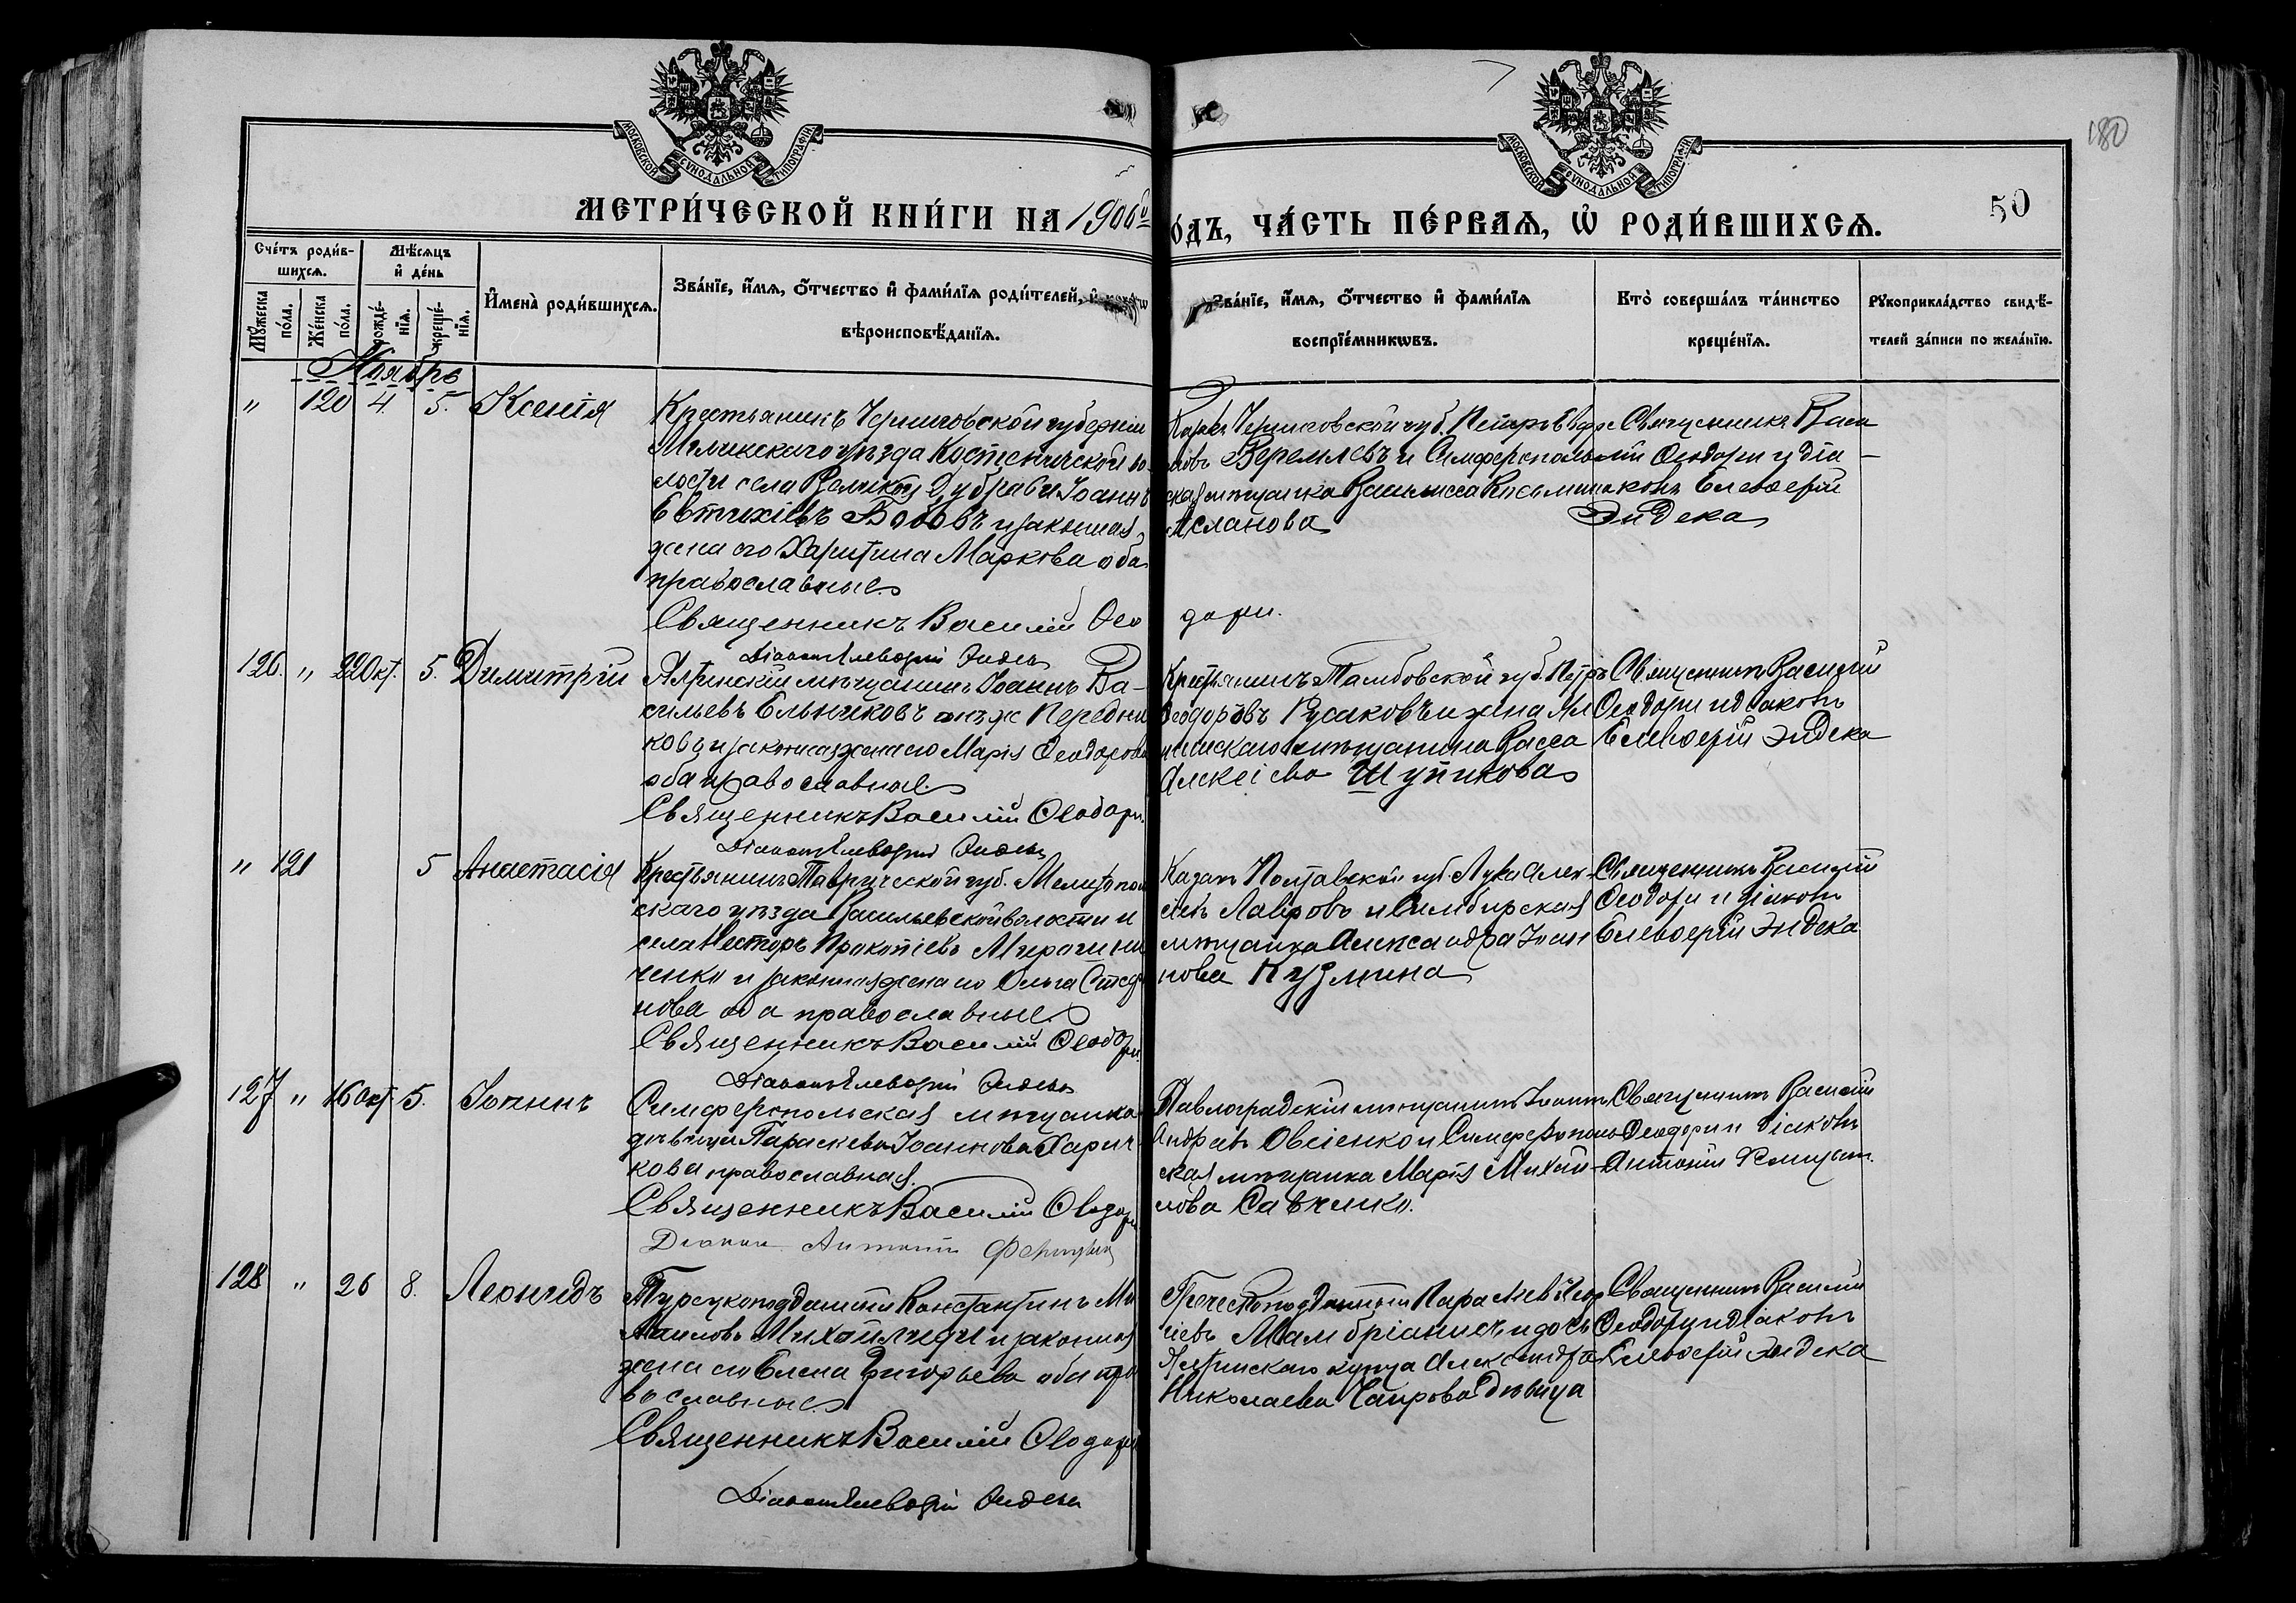 180
МОСКОВСКОЙ СѴНОДАЛЬНОЙ ТИПОГРАФІИ
МОСКОВСКОЙ СѴНОДАЛЬНОЙ ТИПОГРАФІИ
МЕТРИ́ЧЕСКОЙ КНИ́ГИ НА 1906й
О́ДЪ, ЧА́СТЬ ПЕ́РВАѦ, Ѡ҆ РОДИ́ВШИХСѦ.
50
Сче́тъ роди́в-
шихсѧ.
Мѣ́сѧцъ
и҆ де́нь
Мꙋ́жеска
по́ла.
Же́нска
по́ла.
рожде́-
нїѧ.
креще́-
нїѧ.
И҆мена̀ роди́вшихсѧ.
Зва́нїе, и҆́мѧ, ѻ҆́тчество и҆ фамѝлїѧ роди́телей, и҆
вѣроисповѣ́данїѧ.
Зва́нїе, и҆́мѧ, ѻ҆́тчество и҆ фамѝлїѧ
воспрїе́мникѡвъ.
Кто̀ соверша́лъ та́инство
креще́нїѧ.
Рꙋкоприкла́дство свидѣ́-
телей за́писи по жела́нїю.
Ноябрь
" 120 4. 5. Ксенія
Крестьянинъ Черниговской губерніи
Мглинскаго уѣзда Костеничской во-
лости села Великой Дубравы Іоаннъ
Евтихіевъ Бобовъ и законная
жена его Харитина Маркова оба
православные
Священникъ Василій Ѳео
дори.
Діаконъ Елевѳерій Эндека
Черниговской губ. Петръ
Веремьевъ и Симферополь
ская мѣщанка Василисса Косьмина
Асланова
Священникъ Васи
лій Ѳеодори и діа-
конъ Елевѳерій
Эндека
126. " 22 Окт. 5. Димитрій
Ялтинскій мѣщанинъ Іоаннъ Ва-
сильевъ Ельниковъ
и законная жена его Марія Ѳеодорова
оба православные
Священникъ Василій Ѳеодори.
Діаконъ Елевѳерій Эндека
Крестьянинъ Тамбовской губ. Петръ
Ѳеодоровъ Русаковъ и жена Ял
тинскаго мѣщанина Васса
Алексіева Шупикова
Священникъ Василій
Ѳеодори и діаконъ
Елевѳерій Эндека
" 121 5 Анастасія
Крестьянинъ Таврической губ. Мелитополь
скаго уѣзда Васильевской волости и
села Несторъ Прокопіевъ
ченко и законная жена его Ольга Стефа
нова оба православные.
Священникъ Василій Ѳеодори.
Діаконъ Елевѳерій Эндека
Казакъ Полтавской губ. Лука Алек-
сіевъ Лавровъ и Симбирская
мѣщанка Александра Іоан
нова Кузмина
Священникъ Василій
Ѳеодори и діаконъ
Елевѳерій Эндека
127 " 16 Окт. 5. Іоаннъ
Симферопольская мѣщанка
дѣвица Параскева Іоаннова Харич
кова православная.
Священникъ Василій Ѳеодори
Діаконъ Антоній
Павлоградскій мѣщанинъ Іоаннъ
Андреевъ Овсіенко и Симферополь
ская мѣщанка Марія Михаи-
лова Савченко.
Священникъ Василій
Ѳеодори и діаконъ
Антоній
128 " 26 8. Леонидъ
Турецкоподданный Константинъ Ми
хаиловъ Михайлиди и законная
жена его Елена Григорьева оба пра
вославные
Священникъ Василій Ѳеодори
Діаконъ Елевѳерій Эндека
Греческоподданный Параскевъ
гіевъ Мамбріанисъ и дочь
Ялтинскаго купца Александра
Николаева Чаирова дѣвица
Священникъ Василій
Ѳеодори и діаконъ
Елевѳерій Эндека